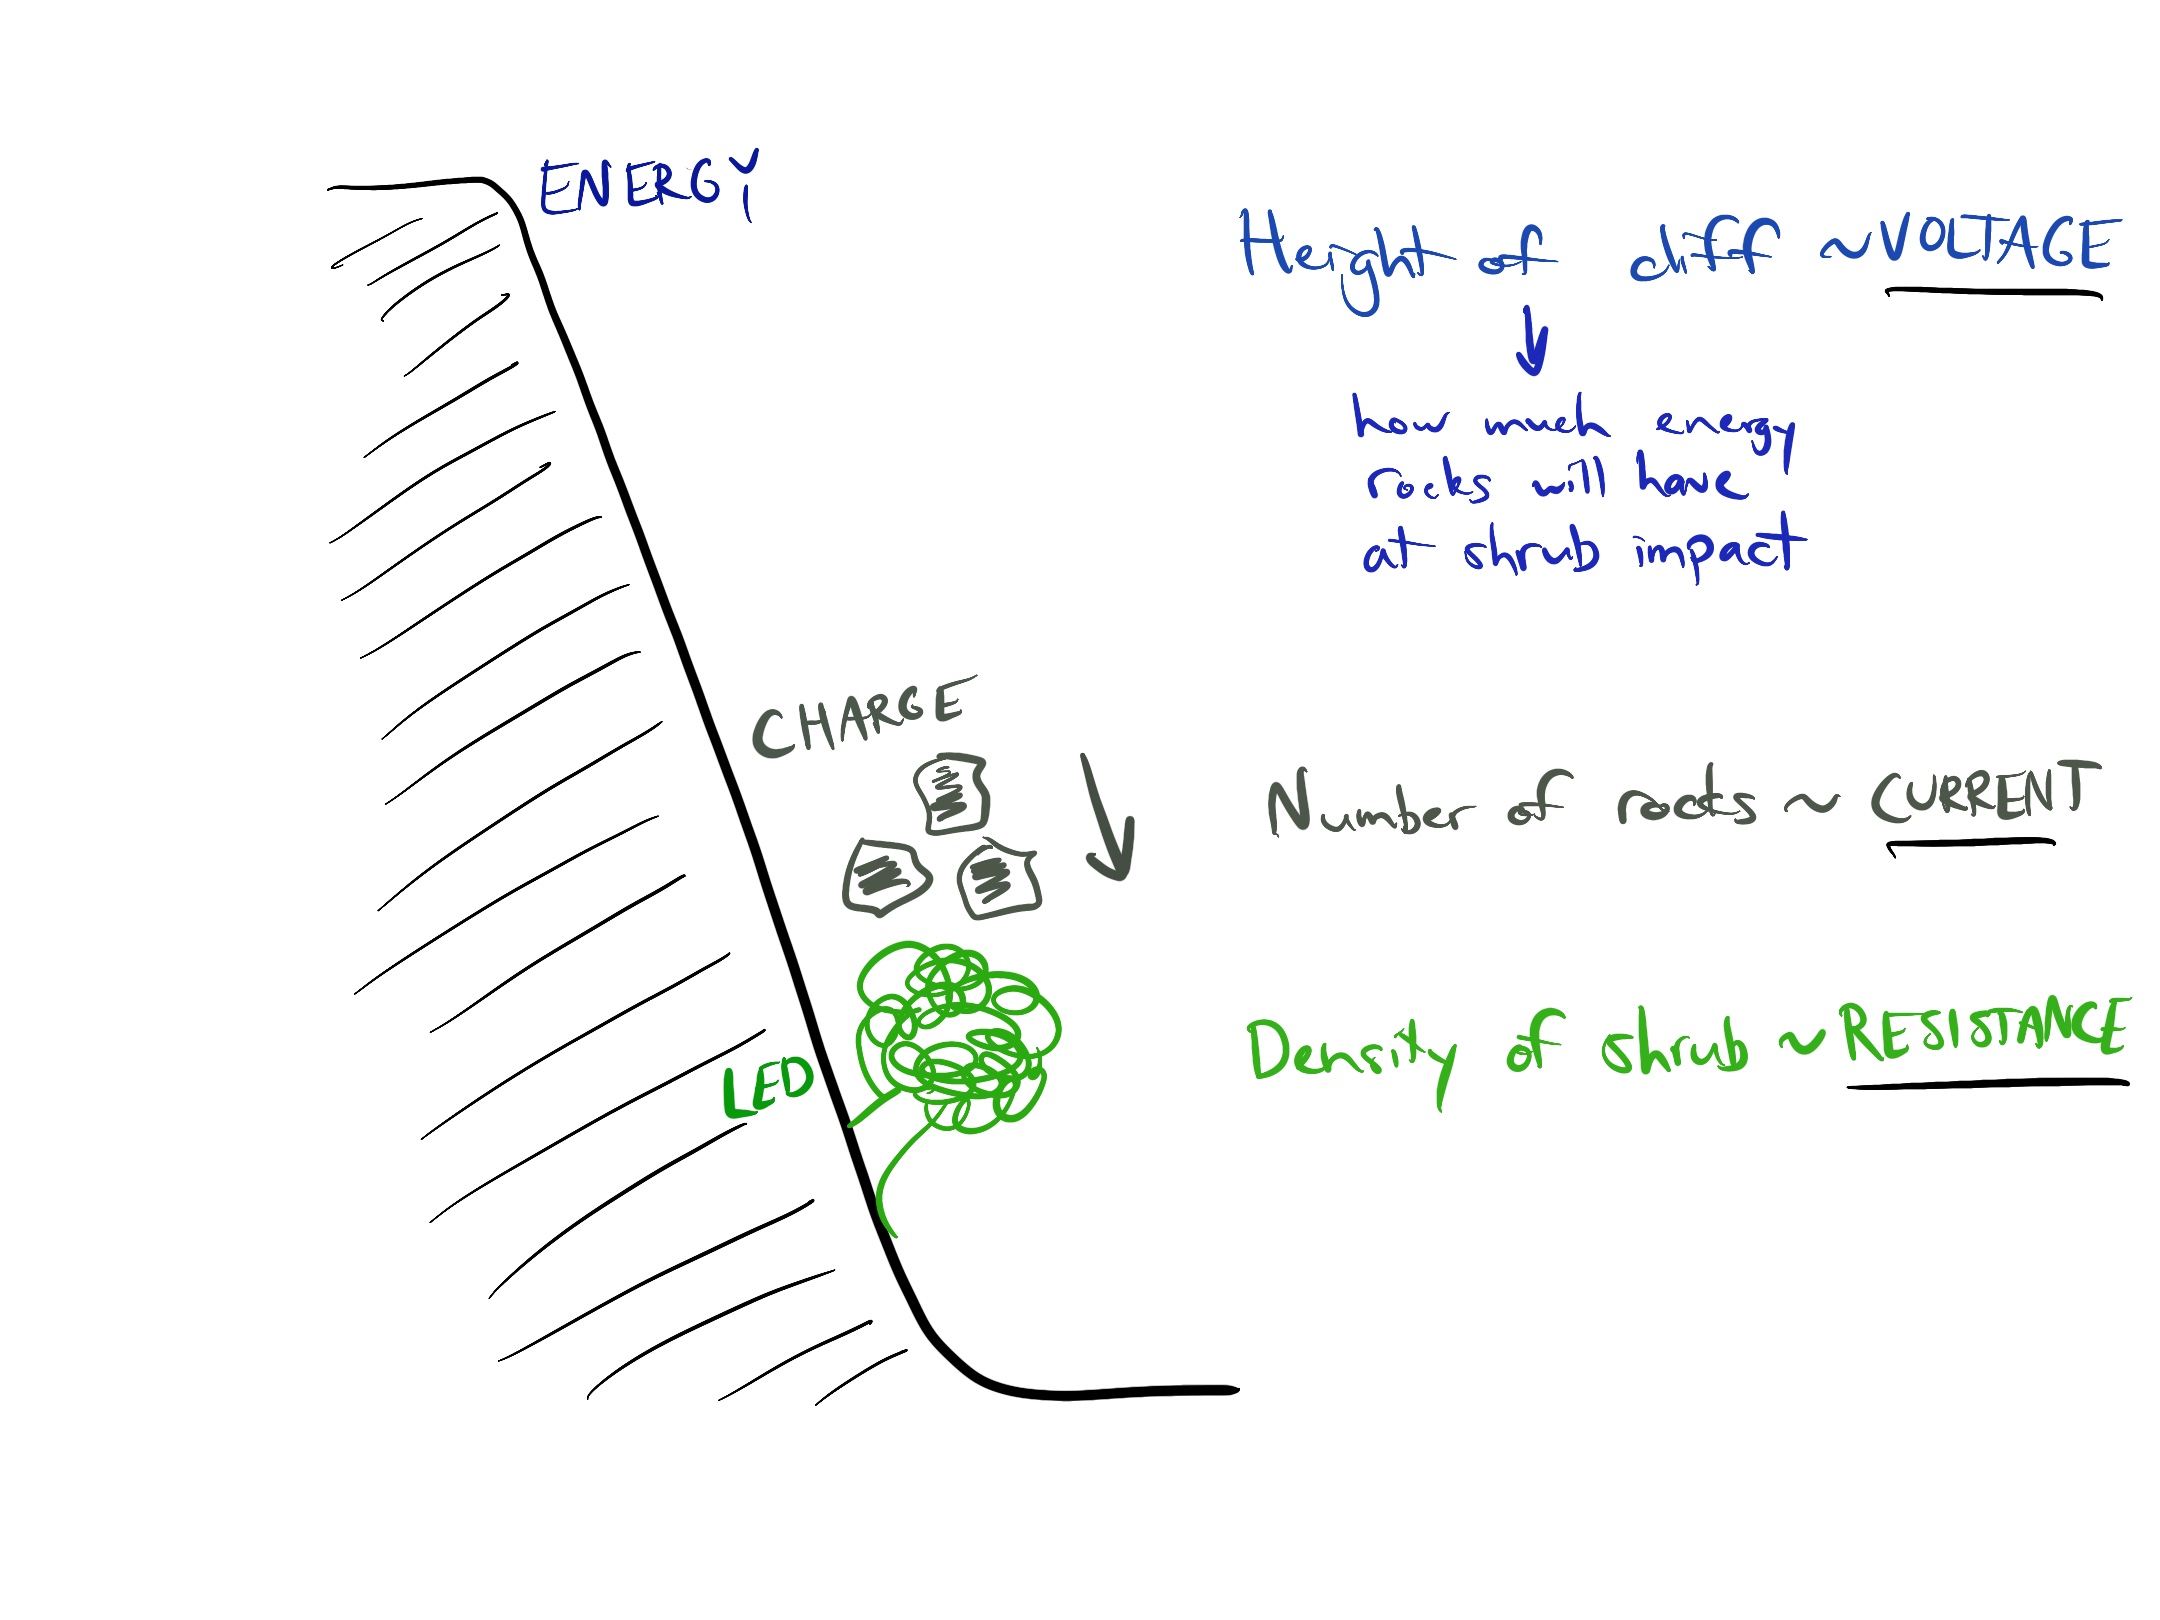 ENERGY
Height of diff ~VOLTAGE
how much energy
rocks will have
at shrub impact
CHARGE
Number of rocks ~ CURRENT
Density of shrub ~ RESISTANCE
LED